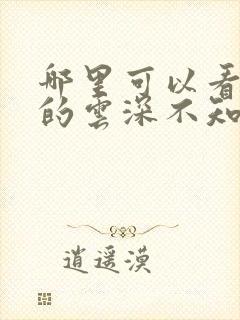 哪里可以看
的雲深不知
逍遥漠